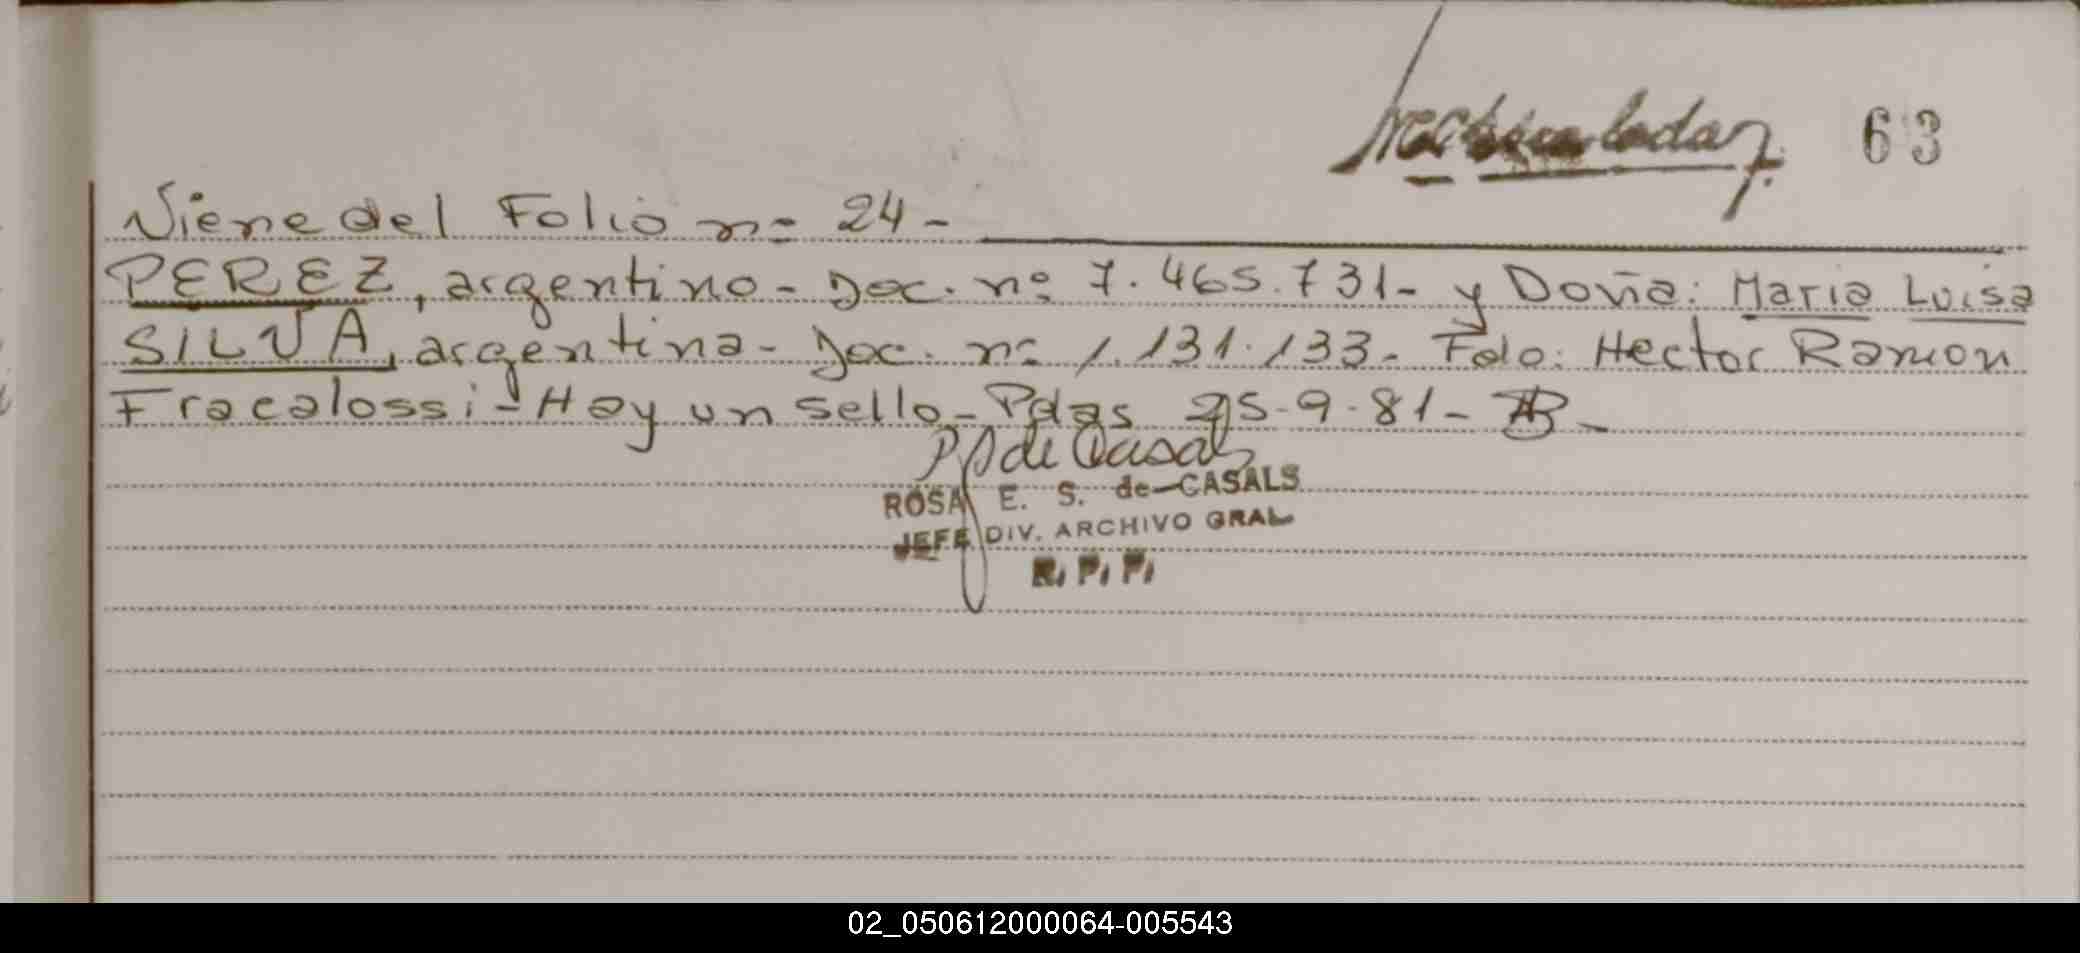 63
Viene del Folio nº 24 -
PEREZ, argentino - Doc. nº 7.465.731 - y Doña: Maria Luisa
SILVA, argentina - Doc. nº 1.131.133 - Fdo: Hector Ramon
Fracalossi - Hay un sello - Pdas 25-9-81 -
de Casals
ROSA E. S. de CASALS
JEFE DIV. ARCHIVO GRAL
R. P. P.
02_050612000064-005543